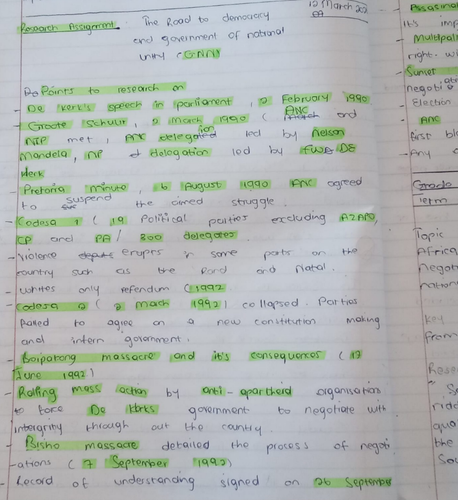 12 March 202
Research Assignment. The Road to democracy
and government of national
unity (GNU)
Points to research on
- De Klerk's speech in parliament, 2 February 1990
- Groote Schuur, 2 March 1990 ( ANC and
NP met, ANC delegation led by Nelson
Mandela, NP delegation led by FW DE
Klerk
- Pretoria minute, 6 August 1990 ANC agreed
to suspend the armed struggle.
- Codesa 1 ( 19 Political parties excluding AZAPO,
CP and PA/ 300 delegates
- Violence erupts in some parts on the
country such as the Rand and Natal.
- Whites only refendum (1992
Codesa 2 ( 2 March 1992) collapsed. Parties
failed to agree on a new constitution making
and intern government.
- Boipatong massacre and it's consequences ( 17
June 1992)
- Rolling mass action by anti-apartheid organisations
to force De klerks government to negotiate with
intergrity through out the country.
- Bisho massacre detailed the process of negoti
-ations ( 7 September 1992)
- Record of understanding signed on 26 September
Assasinat
It's imp
- Multipar
right. wi
- Sunset
negotia
- Election
- ANC
first bl
- Any
Grade
Term
Topic
Africa
negot
nation
Key
from
Rese
qua
the
Sou